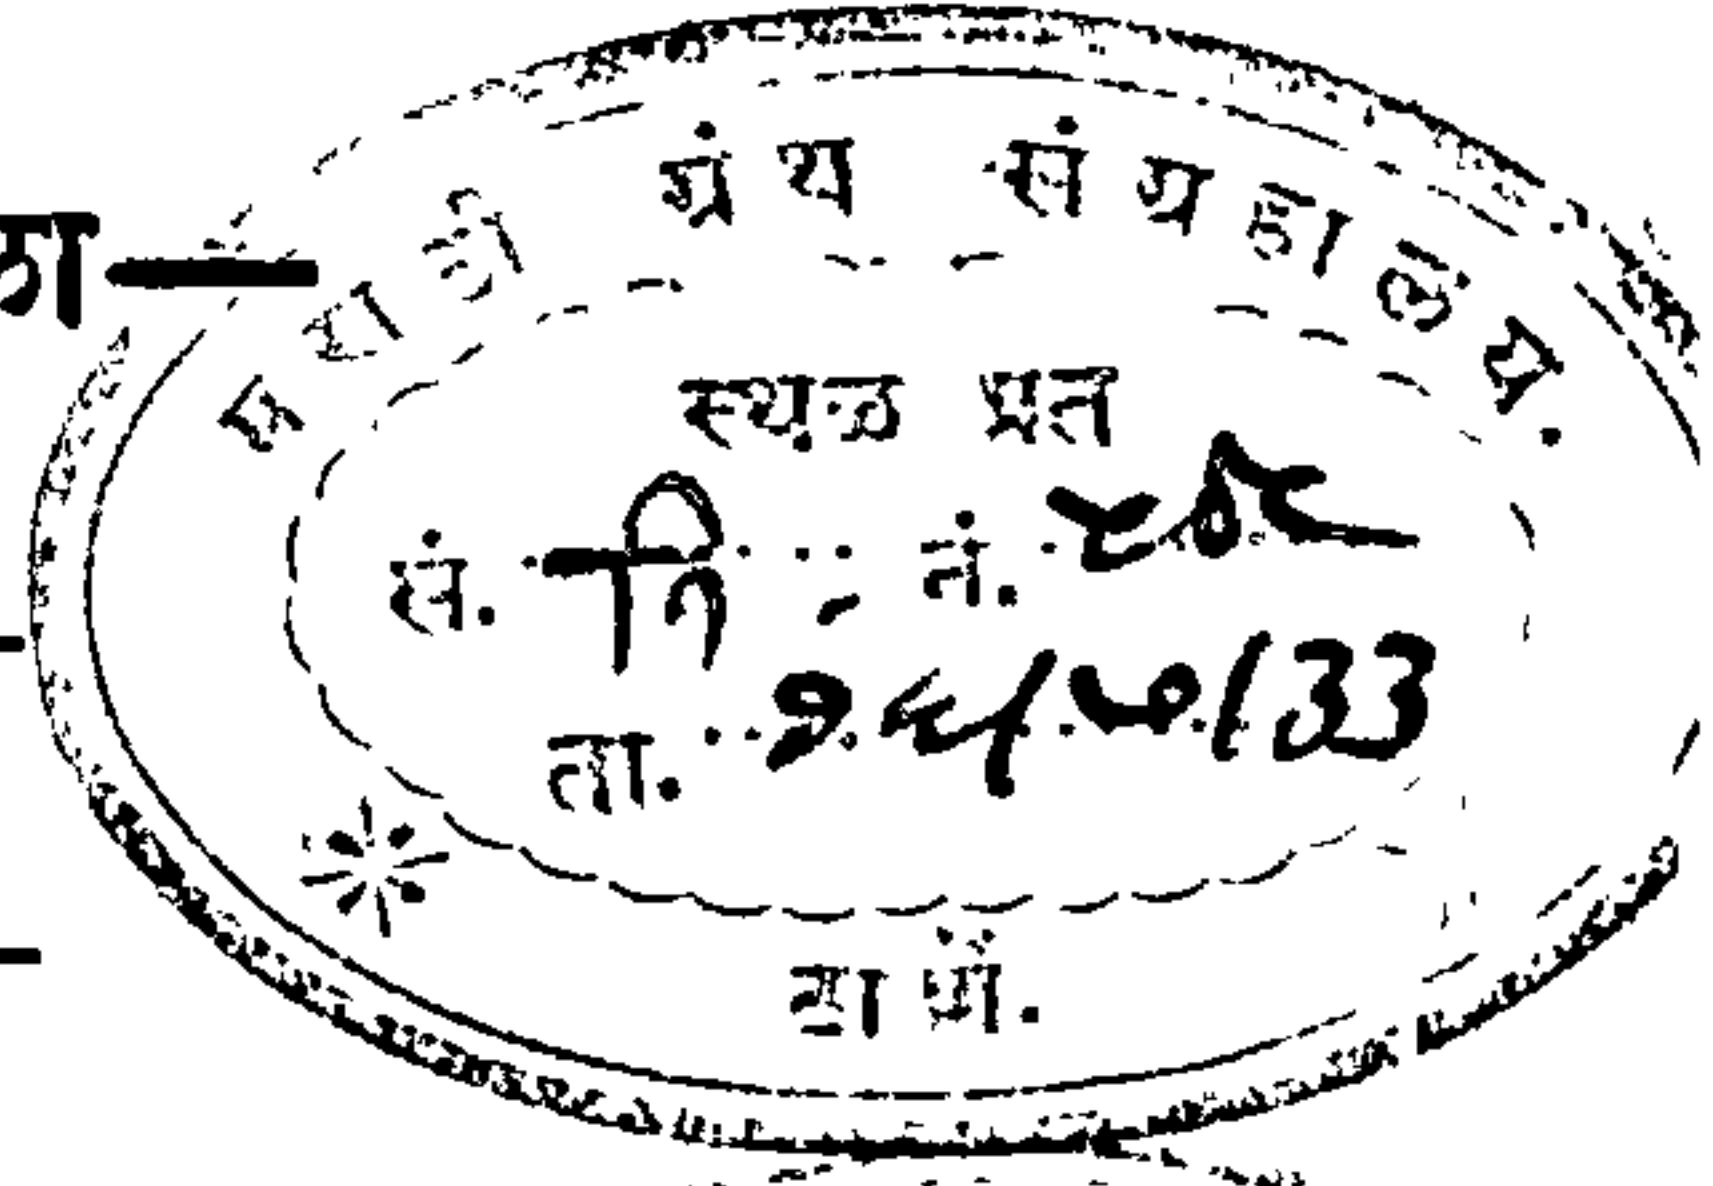 मराठी ग्रंथ संग्रहालय.
स्थळ प्रत
सं. नि नं.
ता. /33
ठाणें.